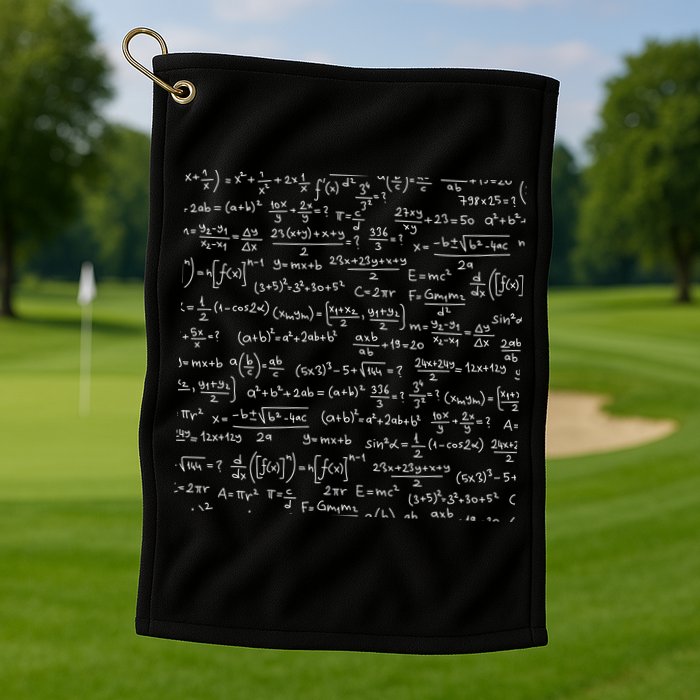 x + 1/x) = x² + 1/x² + 2x 1/x f'(x) d² a(b/c) = ab + 19=20
3⁴/3² = ? 798×25=?
2ab = (a+b)² 10x/y + 2x/y = ? π = c/d 27xy/xy + 23 = 50 a²+b²
= y₂-y₁/x₂-x₁ = Δy/Δx 23(x+y)+x+y/2 = ? 336/3 = ? x = -b±√b²-4ac/2a
) = n[f(x)]ⁿ⁻¹ y=mx+b 23x+23y+x+y/2 E=mc² d/dx([f(x)]
(3+5)²=3²+30+5² C=2πr F=Gm₁m₂/d²
= 1/2 (1-cos2α) (xₘyₘ) = [x₁+x₂/2, y₁+y₂/2] m = y₂-y₁/x₂-x₁ = Δy/Δx sin²α
+ 5x/x = ? (a+b)²=a²+2ab+b² axb/ab +19=20 2ab/ab
y=mx+b a(b/c) = ab/c (5x3)³-5+√144 = ? 24x+24y/2 = 12x+12y
, y₁+y₂/2] a²+b²+2ab=(a+b)² 336/3 = ? 3⁴/3² = ? (xₘyₘ) = [x₁+
πr² x = -b±√b²-4ac/2a (a+b)²=a²+2ab+b² 10x/y + 2x/y = ? A=
= 12x+12y y=mx+b sin²α = 1/2 (1-cos2α) 24x+2
√144 = ? d/dx([f(x)]ⁿ) = n[f(x)]ⁿ⁻¹ 23x+23y+x+y/2 (5x3)³-5+
=2πr A=πr² π = c/d 2πr E=mc² (3+5)²=3²+30+5² C
F=Gm₁m₂ a(b) ab axb